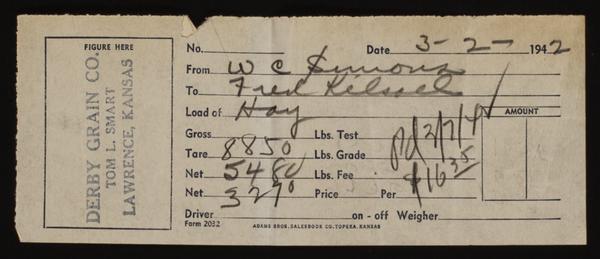 FIGURE HERE
DERBY GRAIN CO.
TOM L. SMART
LAWRENCE, KANSAS
No. Date 3-2- 1942
From W C Simons
To Fred Kilssel
Load of Hay
Gross Lbs. Test
Tare 8850 Lbs. Grade
Net 5480 Lbs. Fee
Net 3270 Price Per
pd 3/7/42
$16.35
AMOUNT
Driver on - off Weigher
Form 2032 ADAMS BROS. SALESBOOK CO. TOPEKA, KANSAS